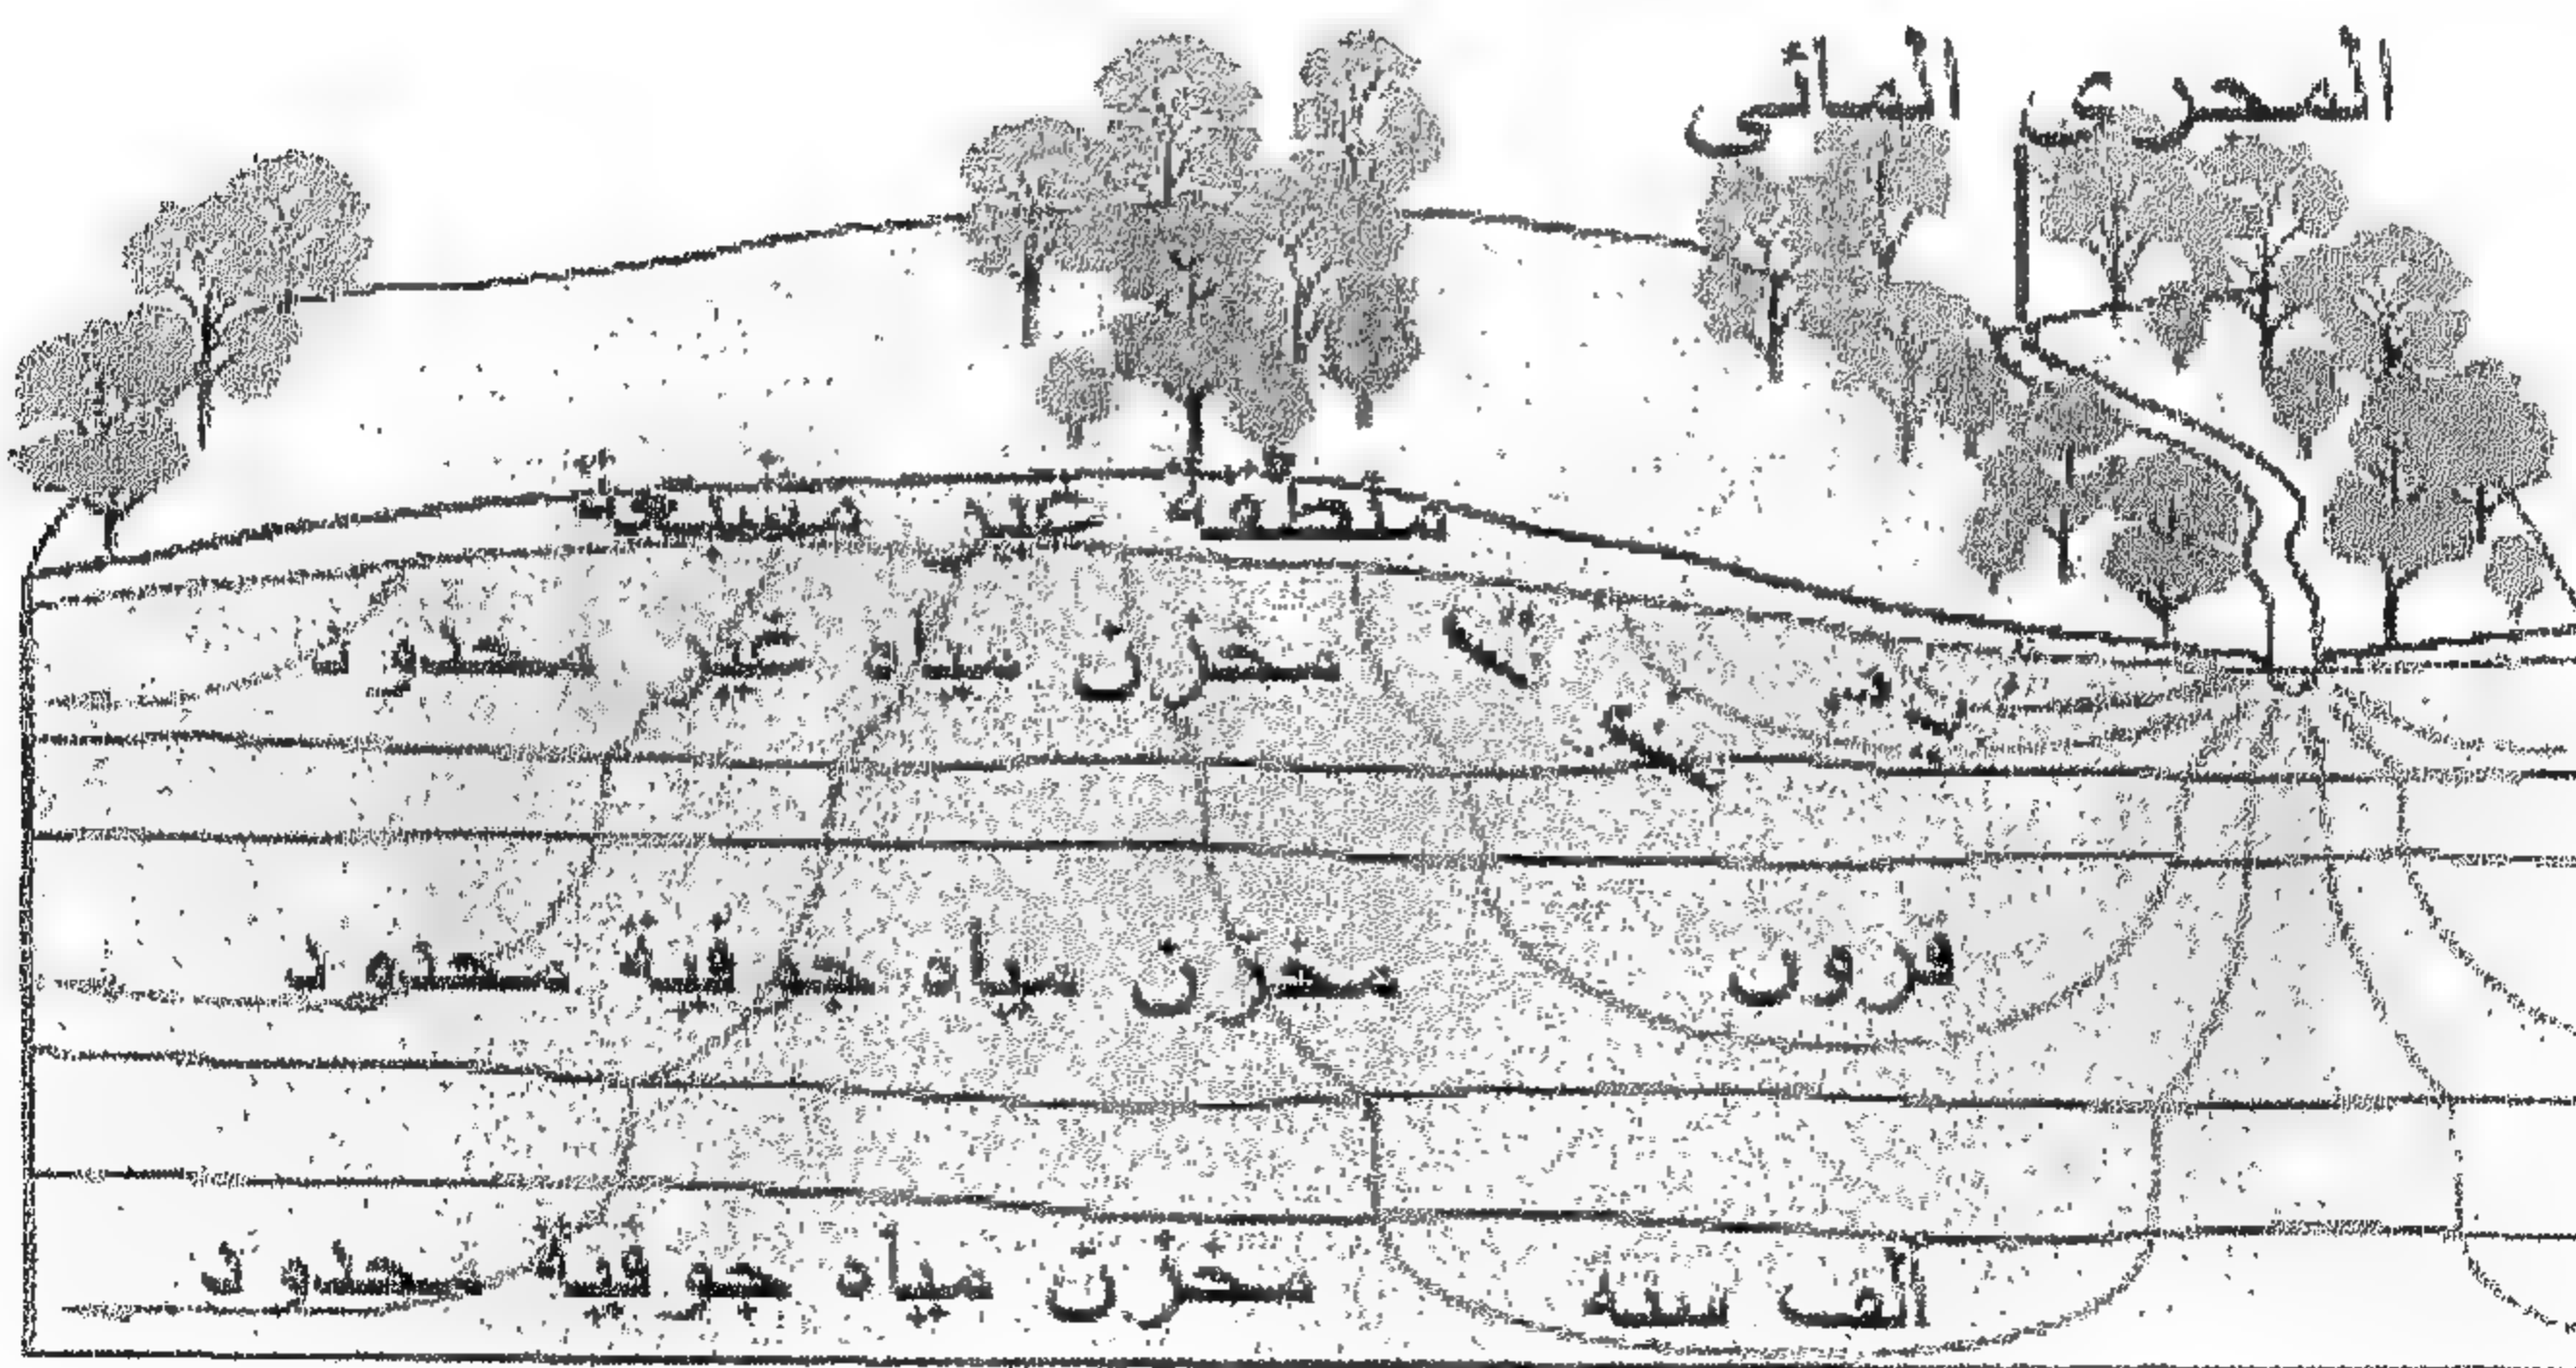 المجرى المائى
منطقة غير مشبعة
مخزن مياه غير محدود
قرون
مخزن مياه جوفية محدود
ألف سنة
مخزن مياه جوفية محدود